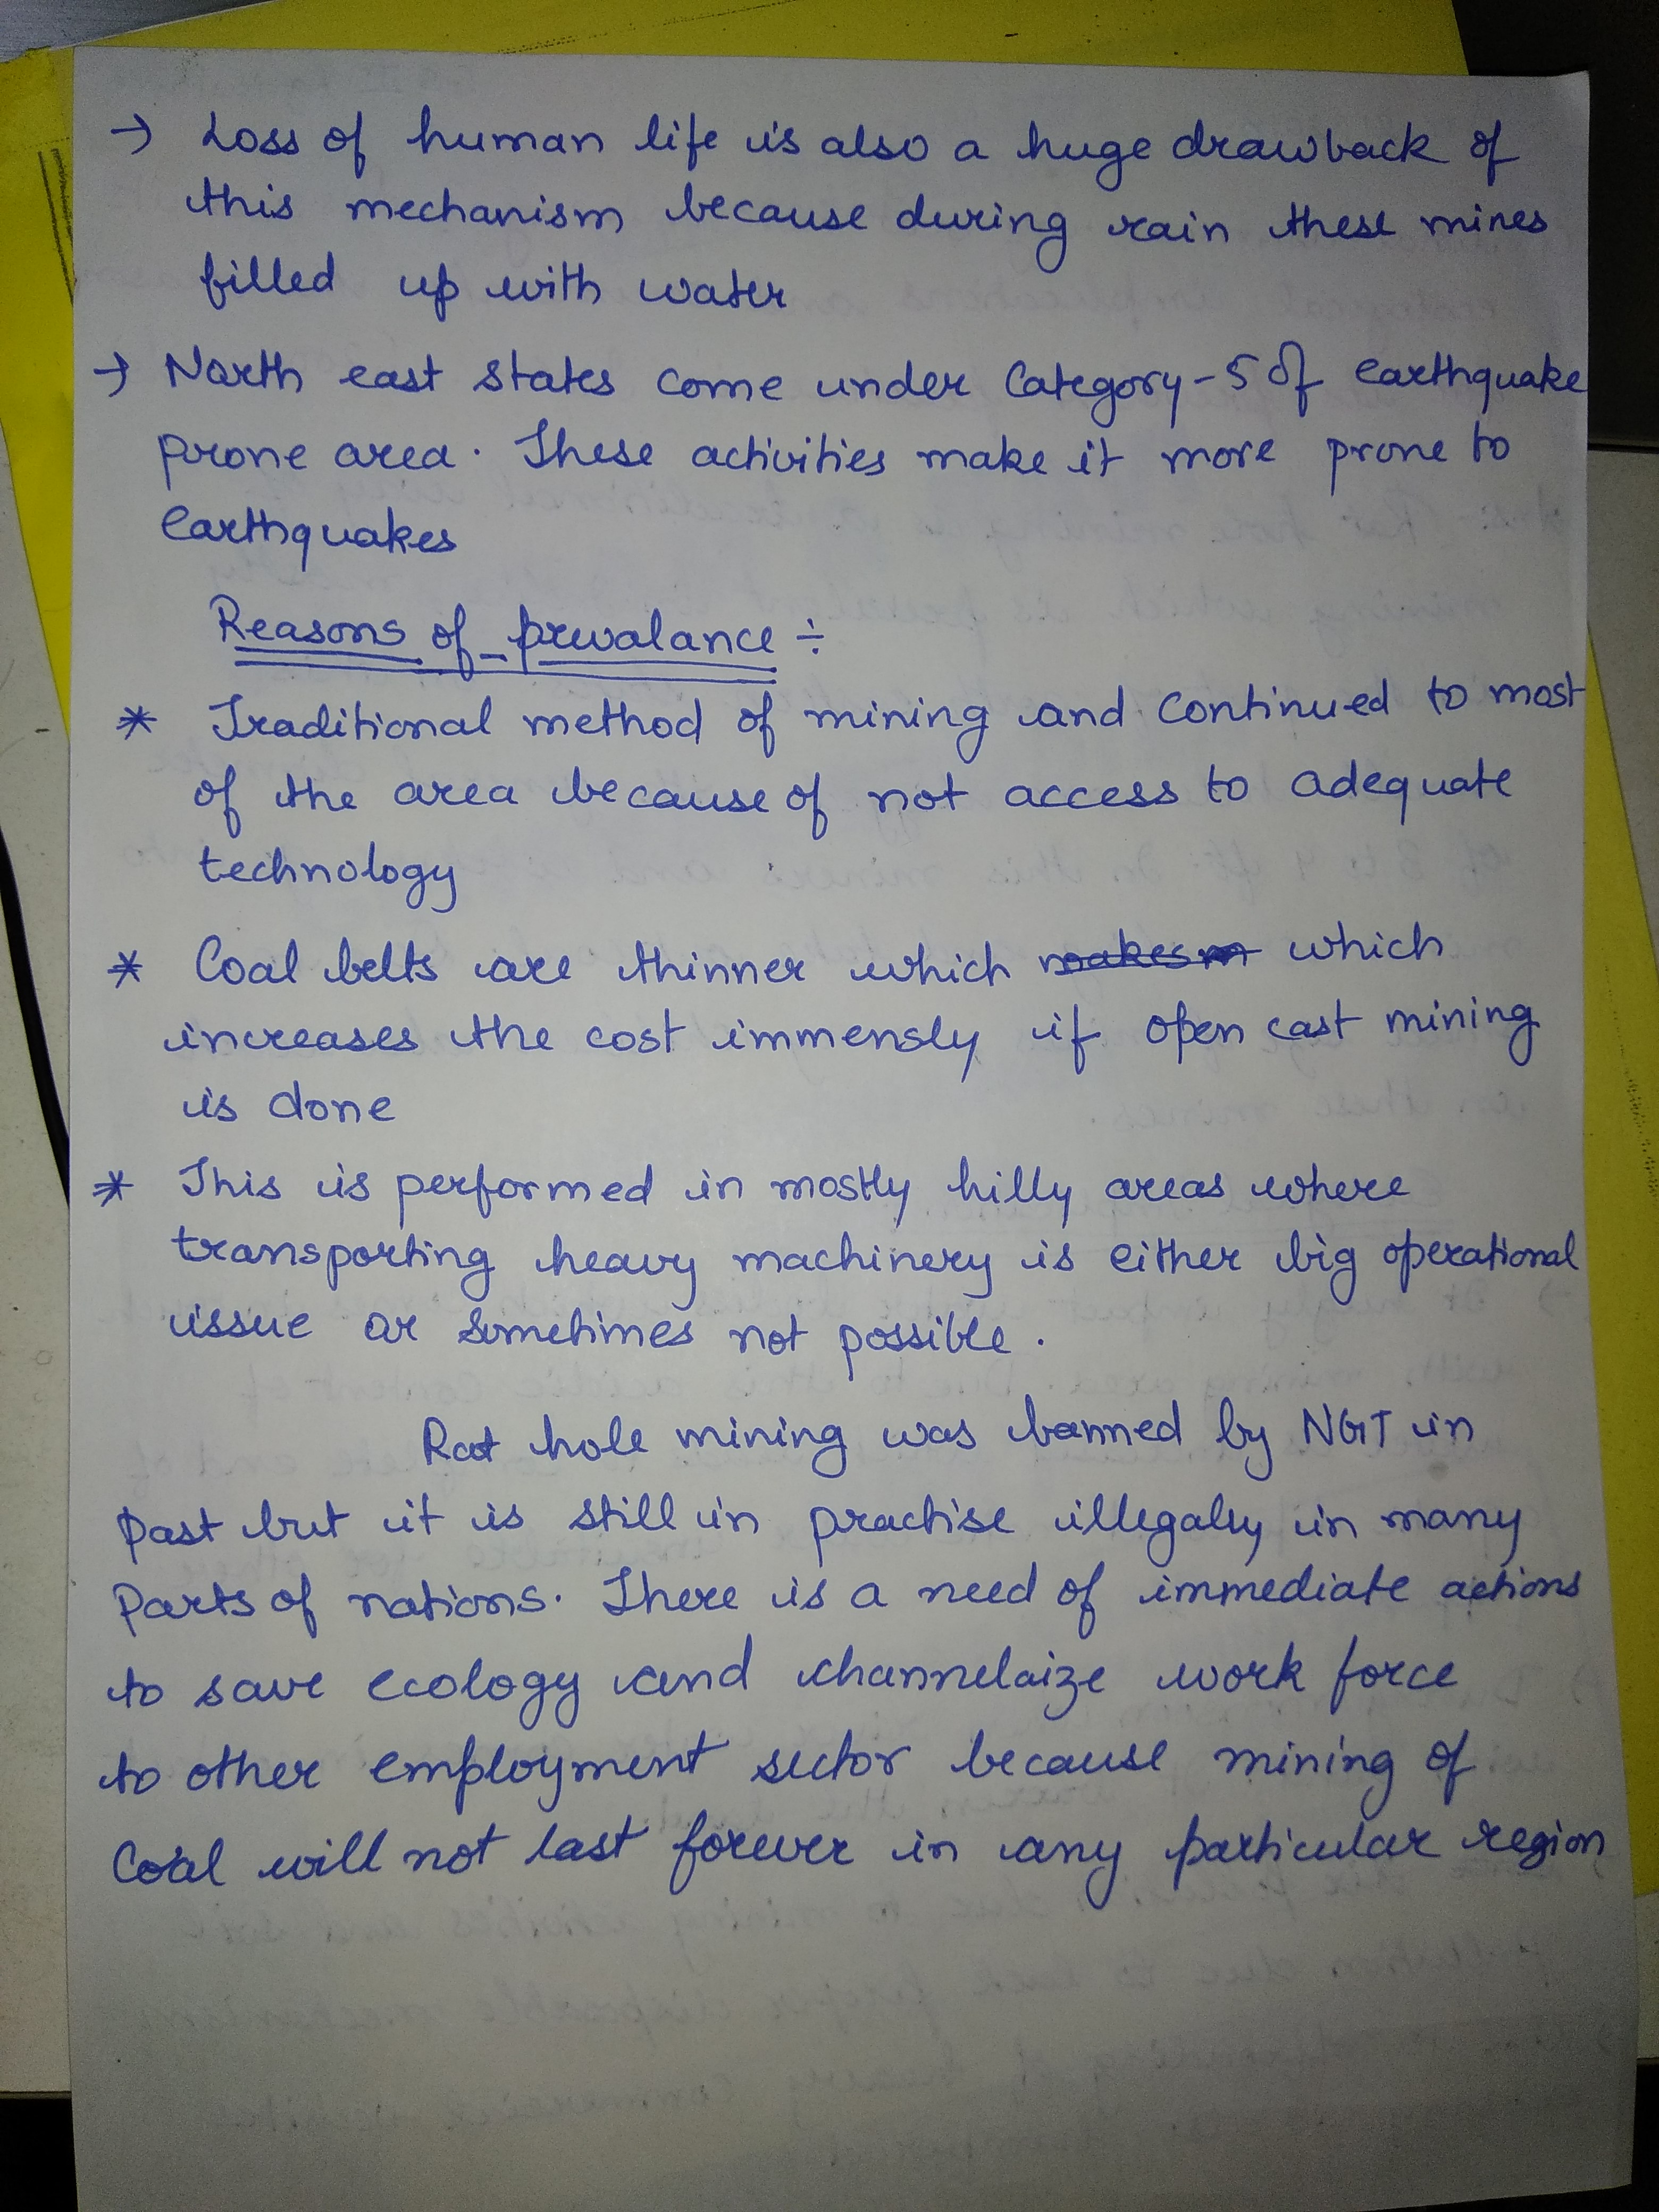 → Loss of human life is also a huge drawback of
this mechanism because during rain these mines
filled up with water
→ North east states come under Category-5 Of earthquake
prone area. These activities make it more prone to
earthquakes
Reasons of prevalance ÷
* Traditional method of mining and continued to most
of the area because of not access to adequate
technology
* Coal belts are thinner which makes m which
increases the cost immensly if open cast mining
is done
* This is performed in mostly hilly areas where
transporting heavy machinery is either big operational
issue or sometimes not possible.
Rat hole mining was banned by NGT in
past but it is still in practise illegaly in many
parts of nations. There is a need of immediate actions
to save ecology and channelaize work force
to other employment sector because mining of
Coal will not last forever in any particular region